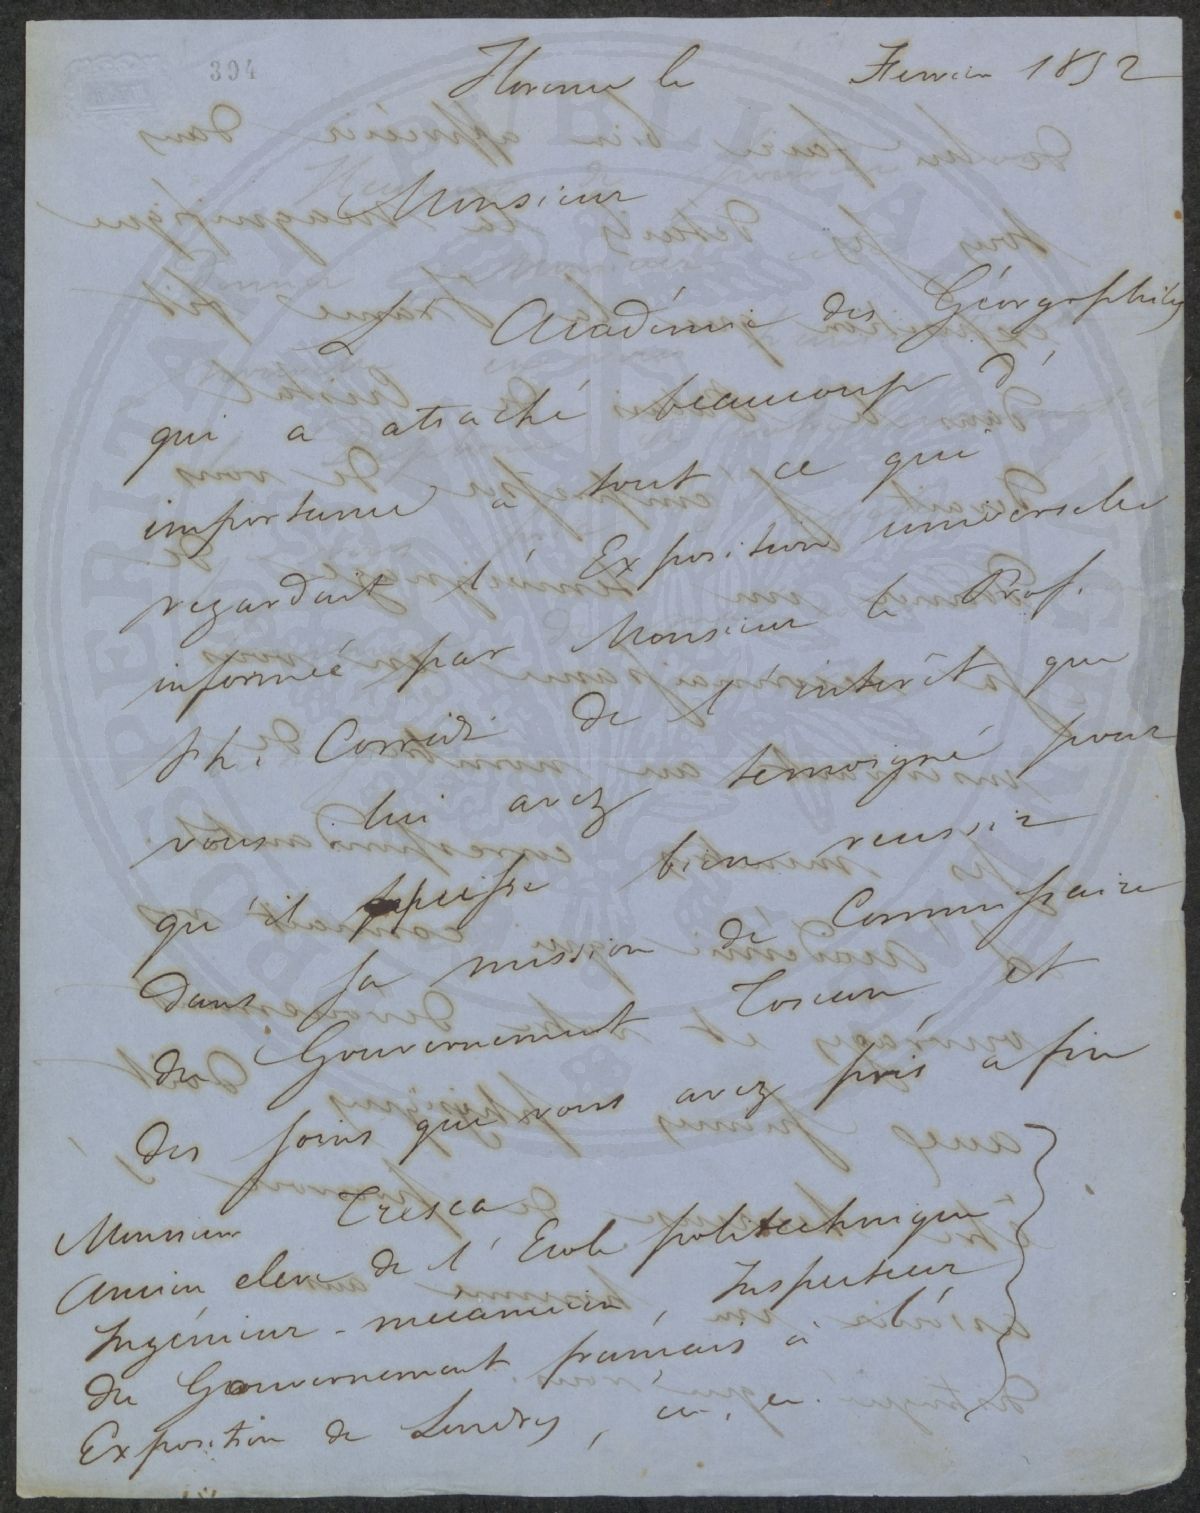 394
Florence le Fevrier 1852
Monsieur
L'Académie des Géorgophiles
qui a attaché beaucoup d'
importance à tout ce qui
regardait l'Exposition universelle
informée par Monsieur le Prof.
Ph. Corridi de l'interêt que
vous lui avez temoigné pour
qu'il puisse bien reussir
dans sa mission de Commissaire
du Gouvernement Toscan et
des soins que vous avez pris afin
Monsieur Tresca
Ancien eleve de l'Ecole politechnique
Ingénieur-mécanicien, Inspecteur
du Gouvernement français à l'
Exposition de Londres,